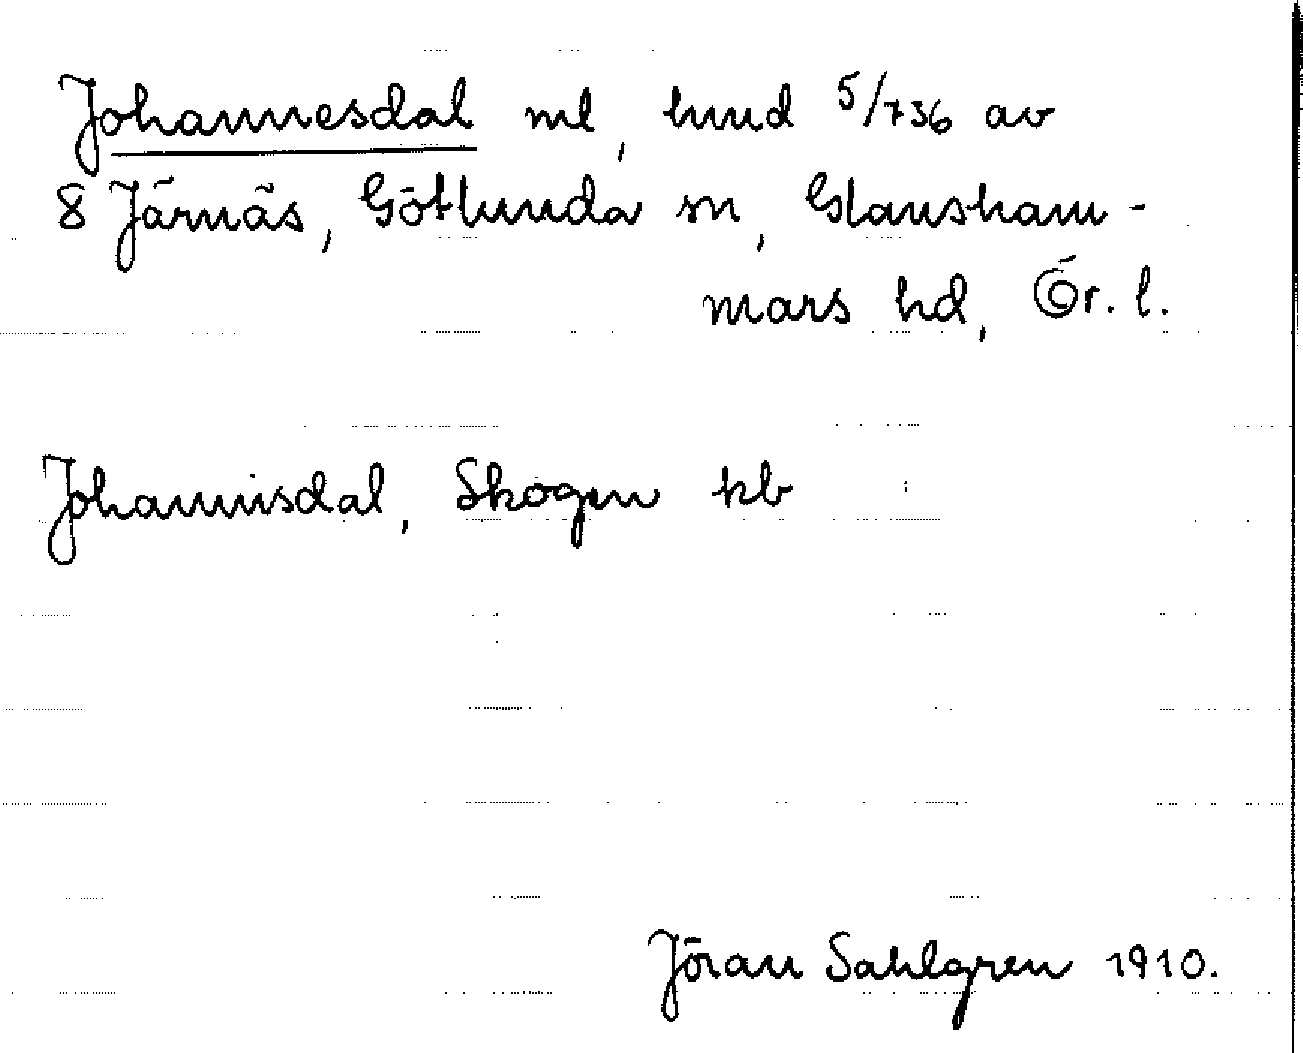 Johannesdal ml, hmd 5/736 av
8 Järnäs, Götlunda sn, Glansham-
mars hd, Ör. l.
Johannisdal, Skogen kb
Jöran Sahlgren 1910.